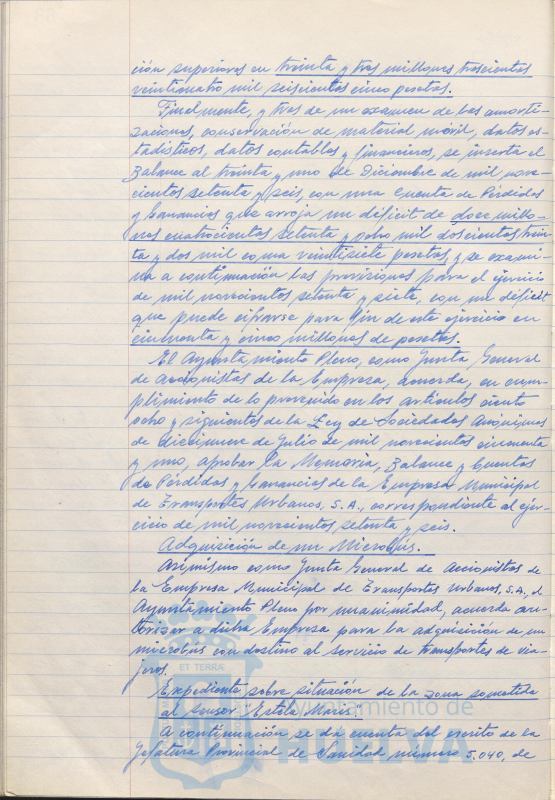 ción superiores en treinta y tres millones trescientas
veinticuatro mil seiscientas cinco pesetas.
Finalmente, y tras de un examen de las amorti-
zaciones, conservación de material móvil, datos es-
tadísticos, datos contables y financieros, se inserta el
Balance al treinta y uno de Diciembre de mil nove-
cientos setenta y seis, con una Cuenta de Pérdidas
y Ganancias que arroja un déficit de doce millo-
nes cuatrocientas setenta y ocho mil doscientas trein
ta y dos mil coma veintisiete pesetas, y se exami-
na a continuación las previsiones para el ejercicio
de mil novecientos setenta y siete, con un déficit
que puede cifrarse para fin de este ejercicio en
cincuenta y cinco millones de pesetas.
El Ayuntamiento Pleno, como Junta General
de Accionistas de la Empresa, acuerda, en cum-
plimiento de lo prevenido en los artículos ciento
ocho y siguientes de la Ley de Sociedades Anónimas
de diecisiete de Julio de mil novecientos cincuenta
y uno, aprobar la Memoria, Balance y Cuentas
de Pérdidas y Ganancias de la Empresa Municipal
de Transportes Urbanos, S.A., correspondiente al ejer-
cicio de mil novecientos setenta y seis.
Adquisición de un Microbús.
Asimismo como Junta General de Accionistas de
la Empresa Municipal de Transportes Urbanos, S.A., el
Ayuntamiento Pleno por unanimidad, acuerda au-
torizar a dicha Empresa para la adquisición de un
microbus con destino al servicio de transportes de via-
jeros.
Expediente sobre situación de la zona sometida
al sensor "Estela Maris".
A continuación se da cuenta del escrito de la
Jefatura Provincial de Sanidad número 5.040, de
ET TERRÆ
Ayuntamiento de
HUELVA